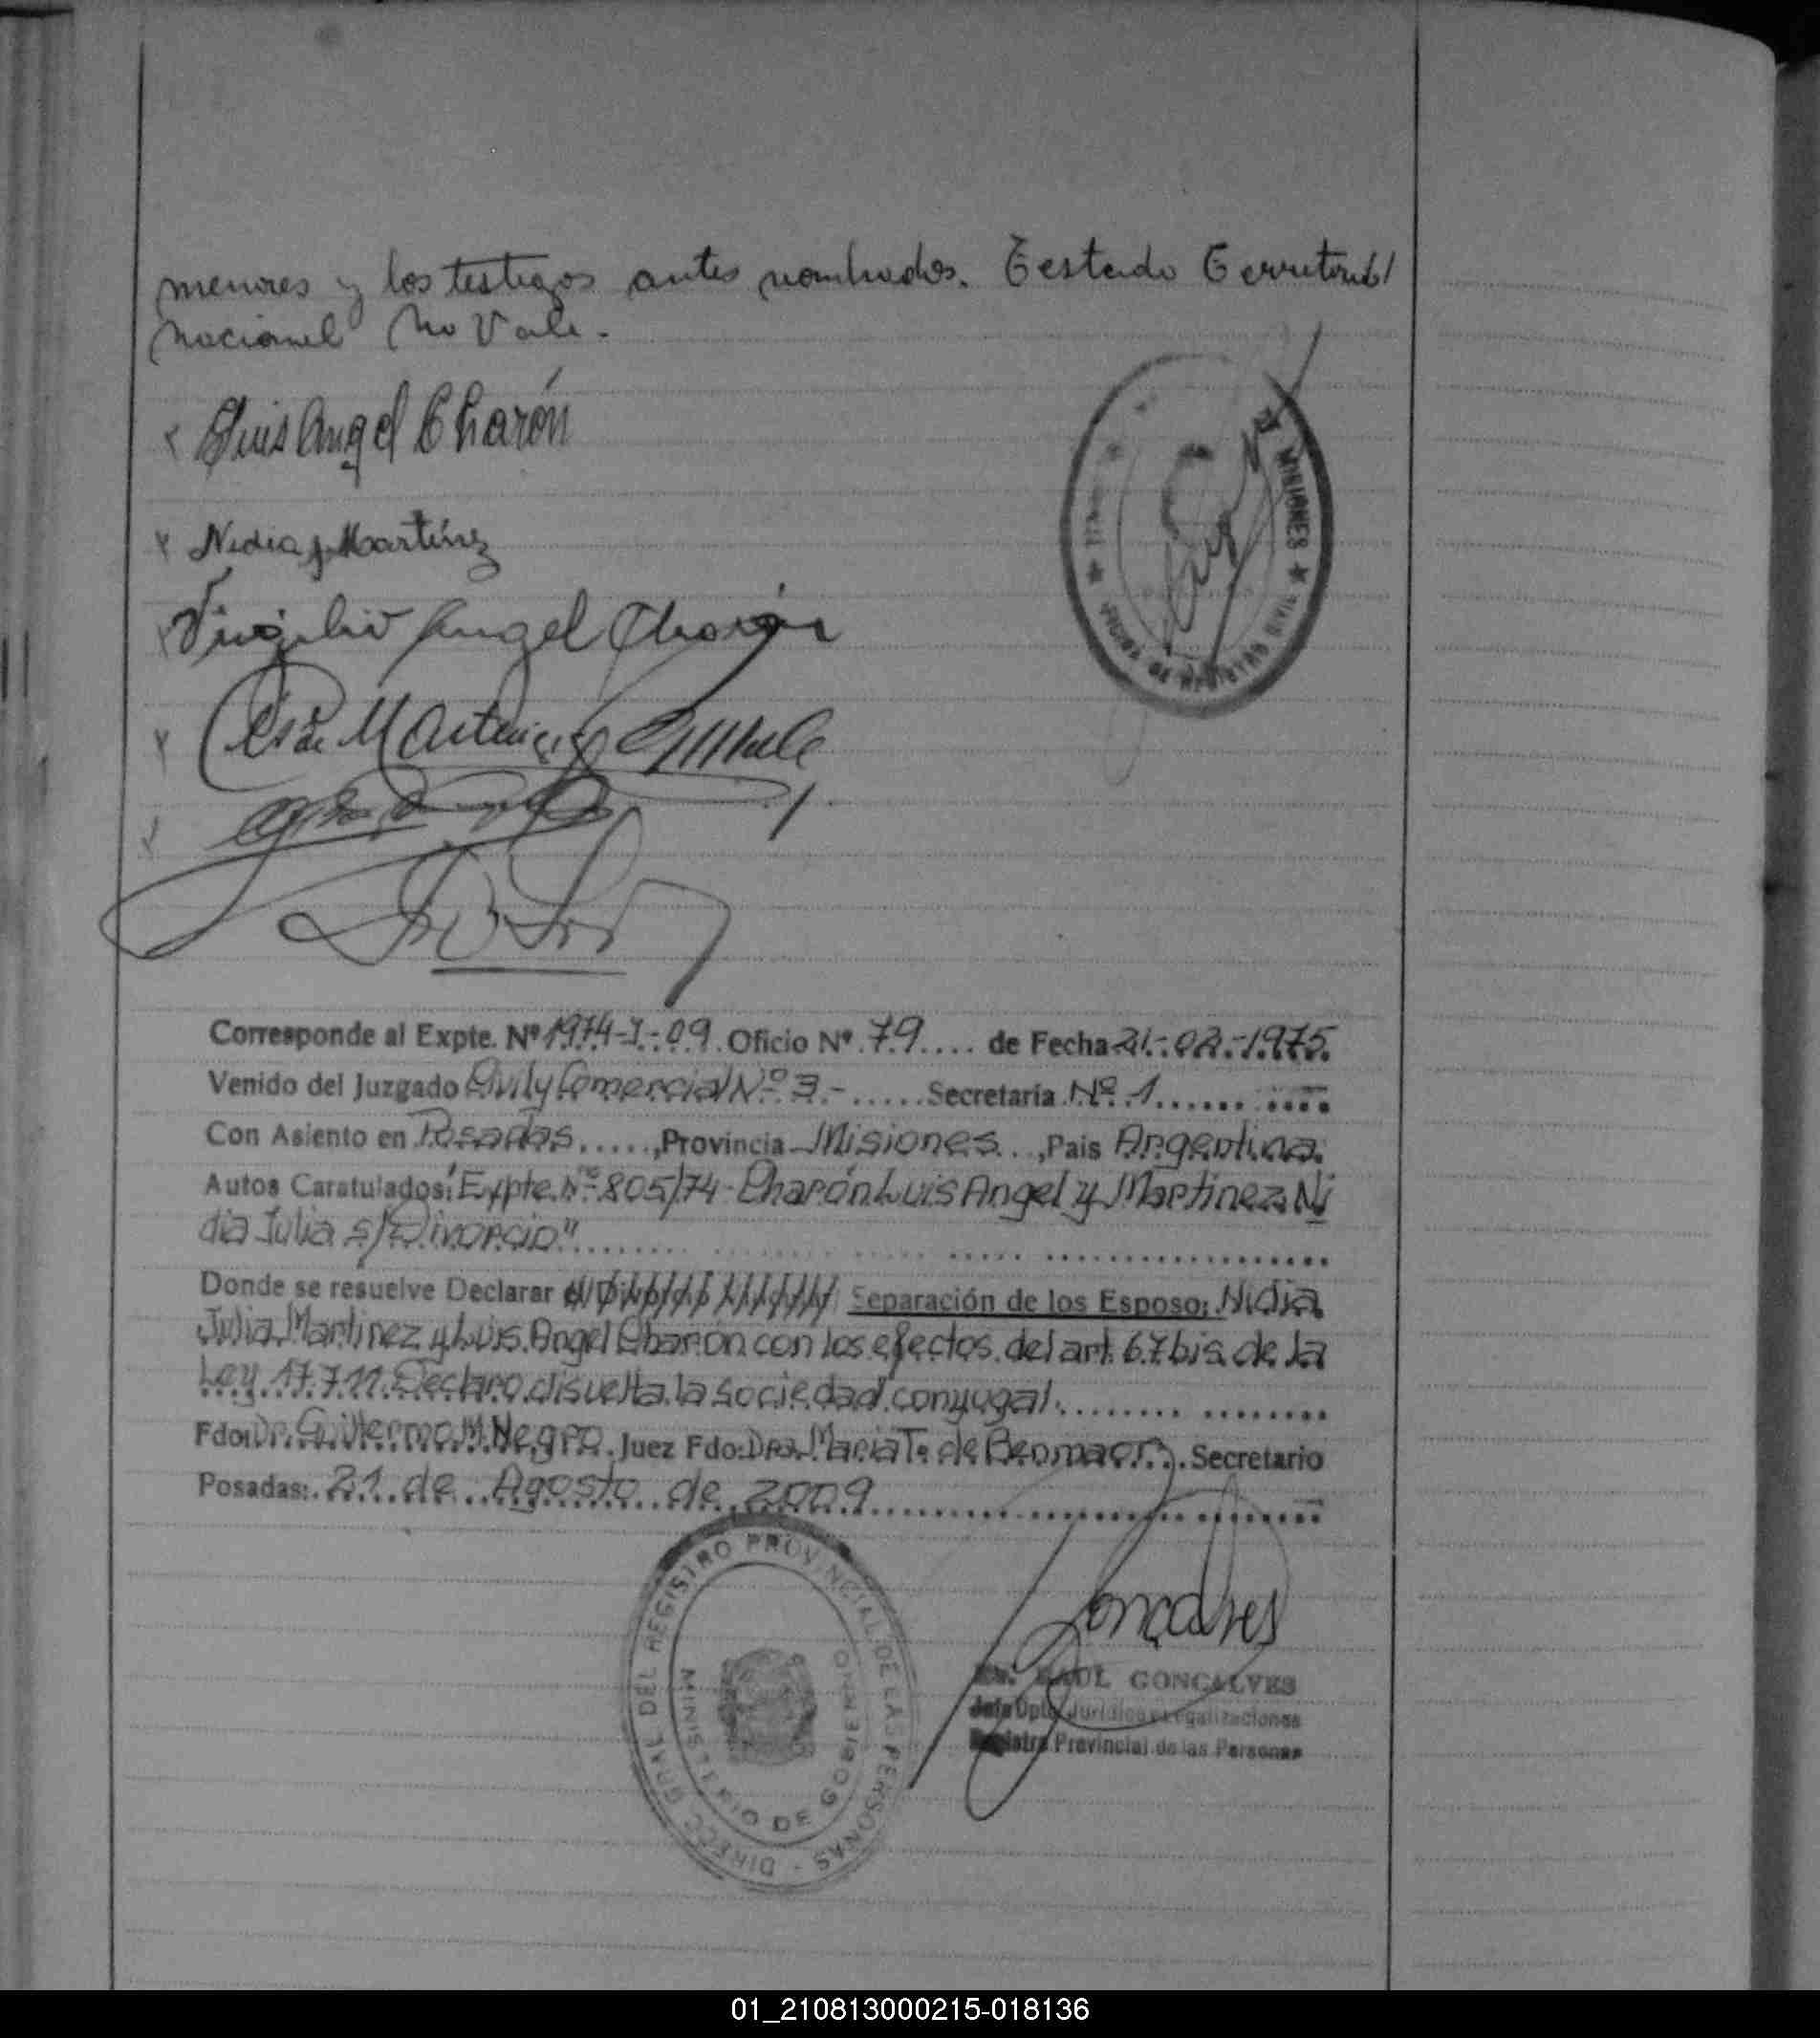 menores y los testigos antes nombrados. Testado Territorial
nacional No Vale.-
Luis Angel Charón
Nidia J. Martínez
Virgilio Angel Charón
de Martinez
DE MISIONES
★ ★
OFICINA DE REGISTRO CIVIL
Corresponde al Expte. Nº 1974-J-09. Oficio Nº 79.... de Fecha 21-02-1975.
Venido del Juzgado Civil y Comercial Nº 3.-..... Secretaría Nº 1..........
Con Asiento en Posadas.....,Provincia Misiones...,Pais Argentina.
Autos Caratulados: "Expte. Nº 805/74- Charón Luis Angel y Martinez Ni
dia Julia s/Divorcio"..........
Donde se resuelve Declarar Separación de los Esposo: Nidia
Julia Martinez y Luis Angel Charon con los efectos del art. 67 bis de la
Ley 17.711. Declaro disuelta la sociedad conyugal..........
Fdo: Dr. Guillermo M. Negro. Juez Fdo: Dra. Maria T. de . Secretario
Posadas: 21 de Agosto de 2009..........
DIRECC GRAL DEL REGISTRO PROVINCIAL DE LAS PERSONAS -
MINISTERIO DE GOBIERNO
Goncalves
RAUL GONCALVES
Jefe Dpto. Jurídico y Legalizaciones
Registro Provincial de las Personas
01_210813000215-018136